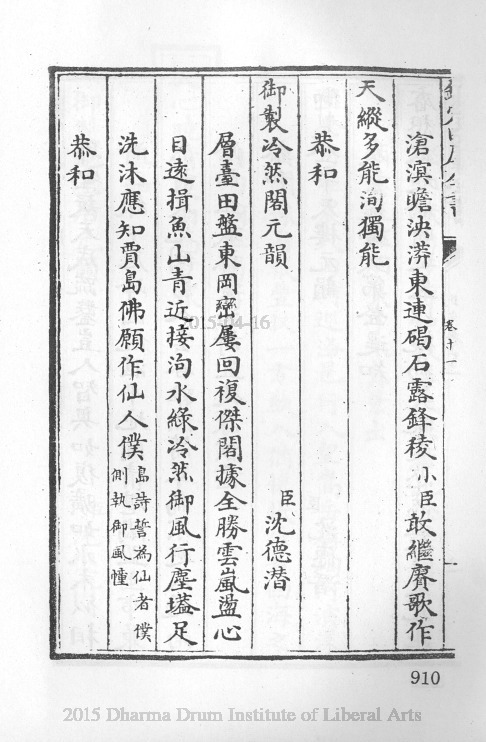 欽定四庫全書
卷十一
滄溟瞻泱漭東連碣石露鋒稜小臣敢繼賡歌作
天縱多能洵獨能
恭和
御製冷然閣元韻
臣沈德潛
層臺田盤東岡巒屢回複傑閣據全勝雲嵐盪心
目遠揖魚山青近接泃水綠冷然御風行塵壒足
洗沐應知賈島佛願作仙人僕島詩誓為仙者僕側執御風幢
恭和
2015-04-16
910
2015 Dharma Drum Institute of Liberal Arts